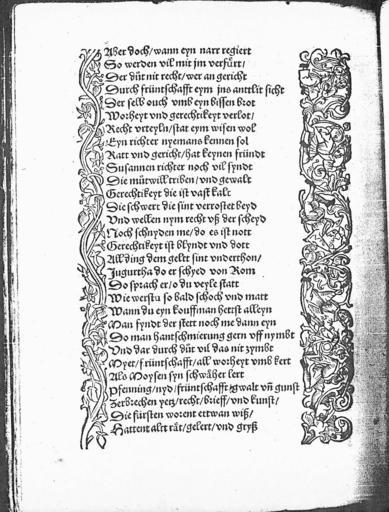 Aber doch/wann eyn narr regiert
So werden vil mit jm verfürt/
Der düt nit recht/wer an gericht
Durch früntschafft eym jns antlit sicht
Der selb ouch vmb eyn bissen brot
Worheyt vnd gerechtikeyt verlot/
Recht vrteyln/stat eym wisen wol
Eyn richter nyemans kennen sol
Ratt vnd gericht/hat keynen fründt
Susannen richter noch vil syndt
Die mütwill triben/vnd gewalt
Gerechtikeyt die ist vast kalt
Die schwert die sint verrostet beyd
Vnd wellen nym recht vß der scheyd
Noch schnyden me/do es ist nott
Gerechtikeyt ist blyndt vnd dott
All ding dem gelt sint vnderthon/
Jugurtha do er schyed von Rom
Do sprach er/o du veyle statt
Wie werstu so bald schoch vnd matt
Wann du eyn kouffman hettst alleyn
Man fyndt der stett noch me dann eyn
Do man hantschmierung gern vff nymbt
Vnd dar durch düt vil das nit zymbt
Myet/früntschafft/all worheyt vmb kert
Als Moysen syn schwäher lert
Pfenning/nyd/früntschafft/gwalt vñ gunst
Zerbrechen yetz/recht/brieff/vnd kunst/
Die fürsten worent ettwan wiß/
Hattent altt rät/gelert/vnd gryß